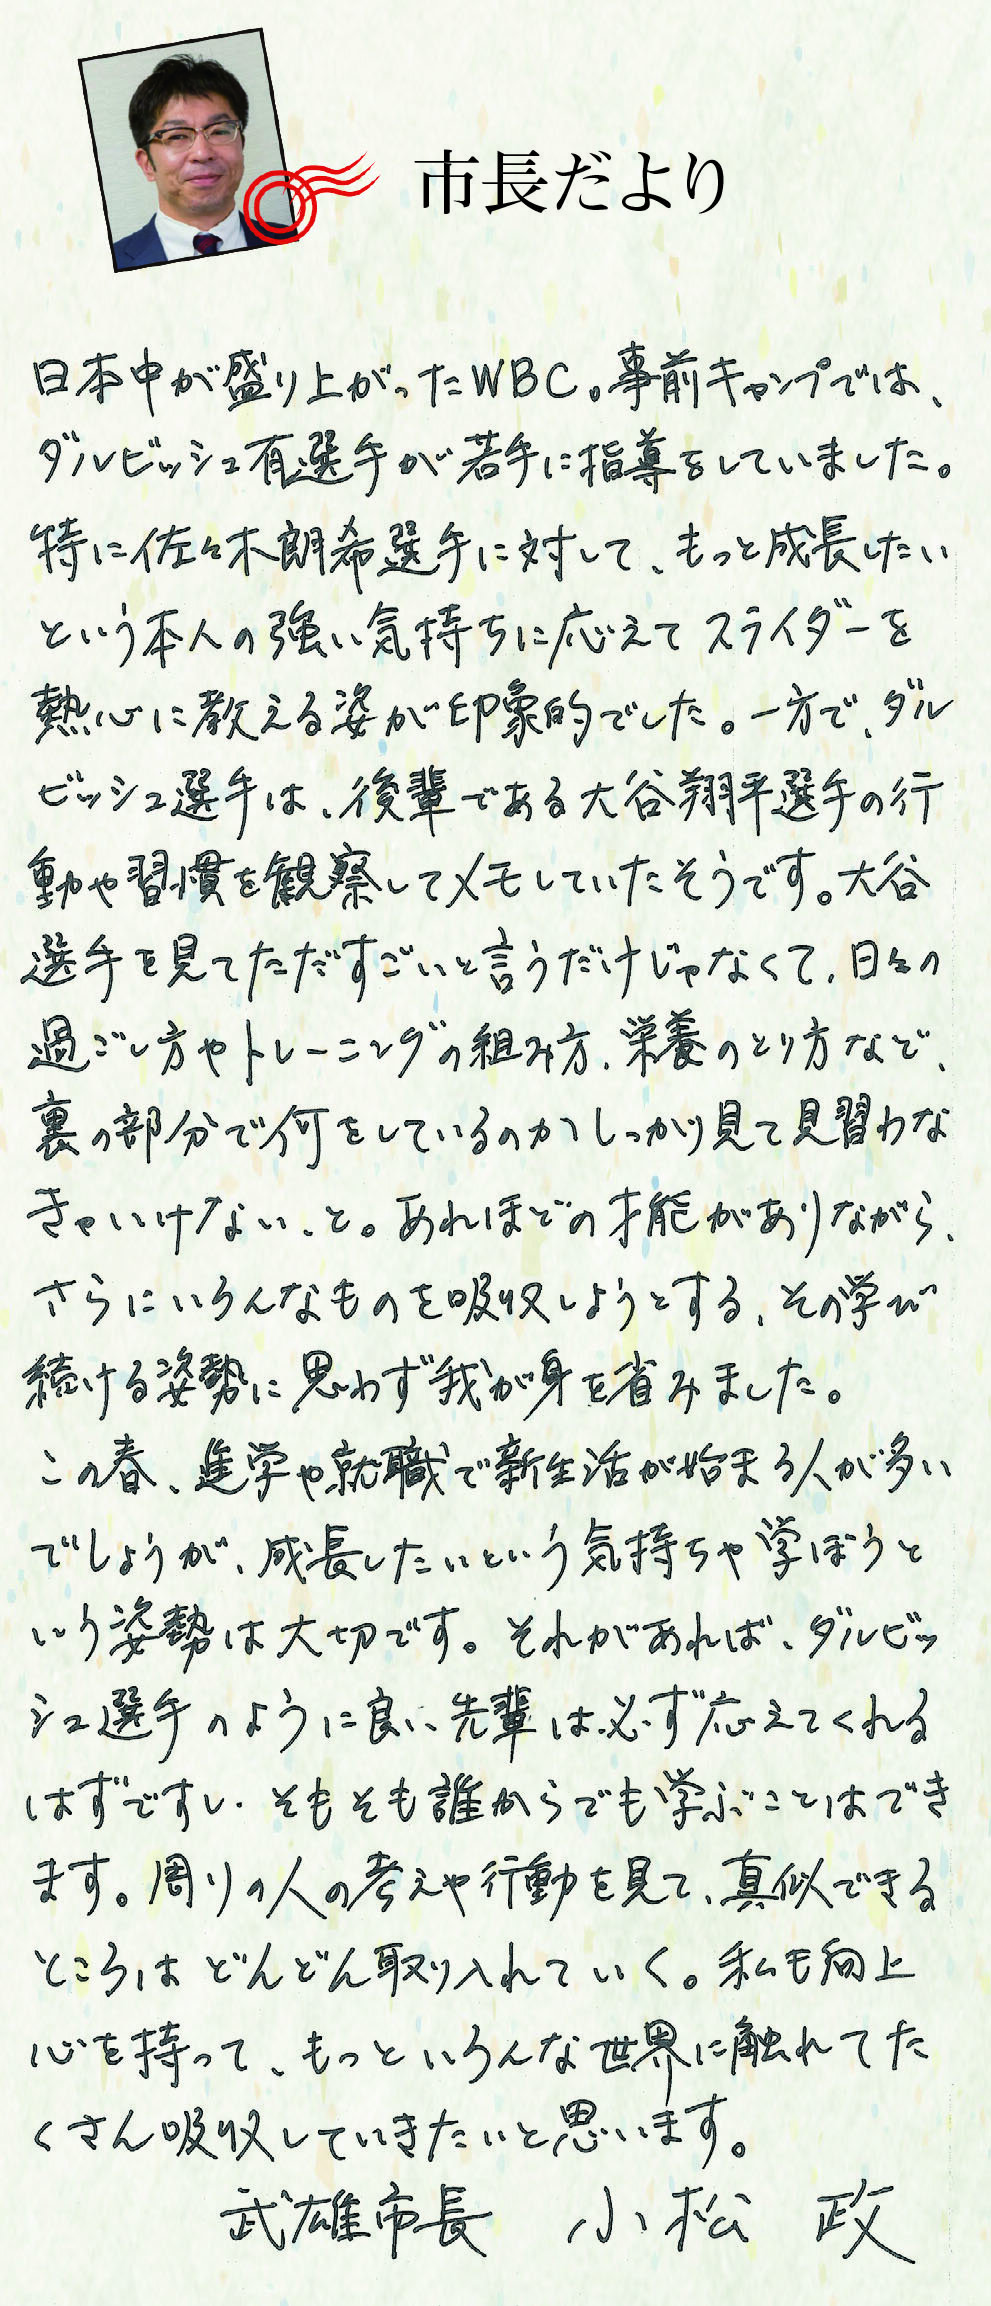 市長だより
日本中が盛り上がったWBC。事前キャンプでは、
ダルビッシュ有選手が若手に指導をしていました。
特に佐々木朗希選手に対して、もっと成長したい
という本人の強い気持ちに応えてスライダーを
熱心に教える姿が印象的でした。一方で、ダル
ビッシュ選手は、後輩である大谷翔平選手の行
動や習慣を観察してメモしていたそうです。大谷
選手を見てただすごいと言うだけじゃなくて、日々の
過ごし方やトレーニングの組み方、栄養のとり方など、
裏の部分で何をしているのかしっかり見て見習わな
きゃいけない、と。あれほどの才能がありながら、
さらにいろんなものを吸収しようとする、その学び
続ける姿勢に思わず我が身を省みました。
この春、進学や就職で新生活が始まる人が多い
でしょうが、成長したいという気持ちや学ぼうと
いう姿勢は大切です。それがあれば、ダルビッ
シュ選手のように良い先輩は必ず応えてくれる
はずですし、そもそも誰からでも学ぶことはでき
ます。周りの人の考えや行動を見て、真似できる
ところはどんどん取り入れていく。私も向上
心を持って、もっといろんな世界に触れてた
くさん吸収していきたいと思います。
武雄市長 小松 政